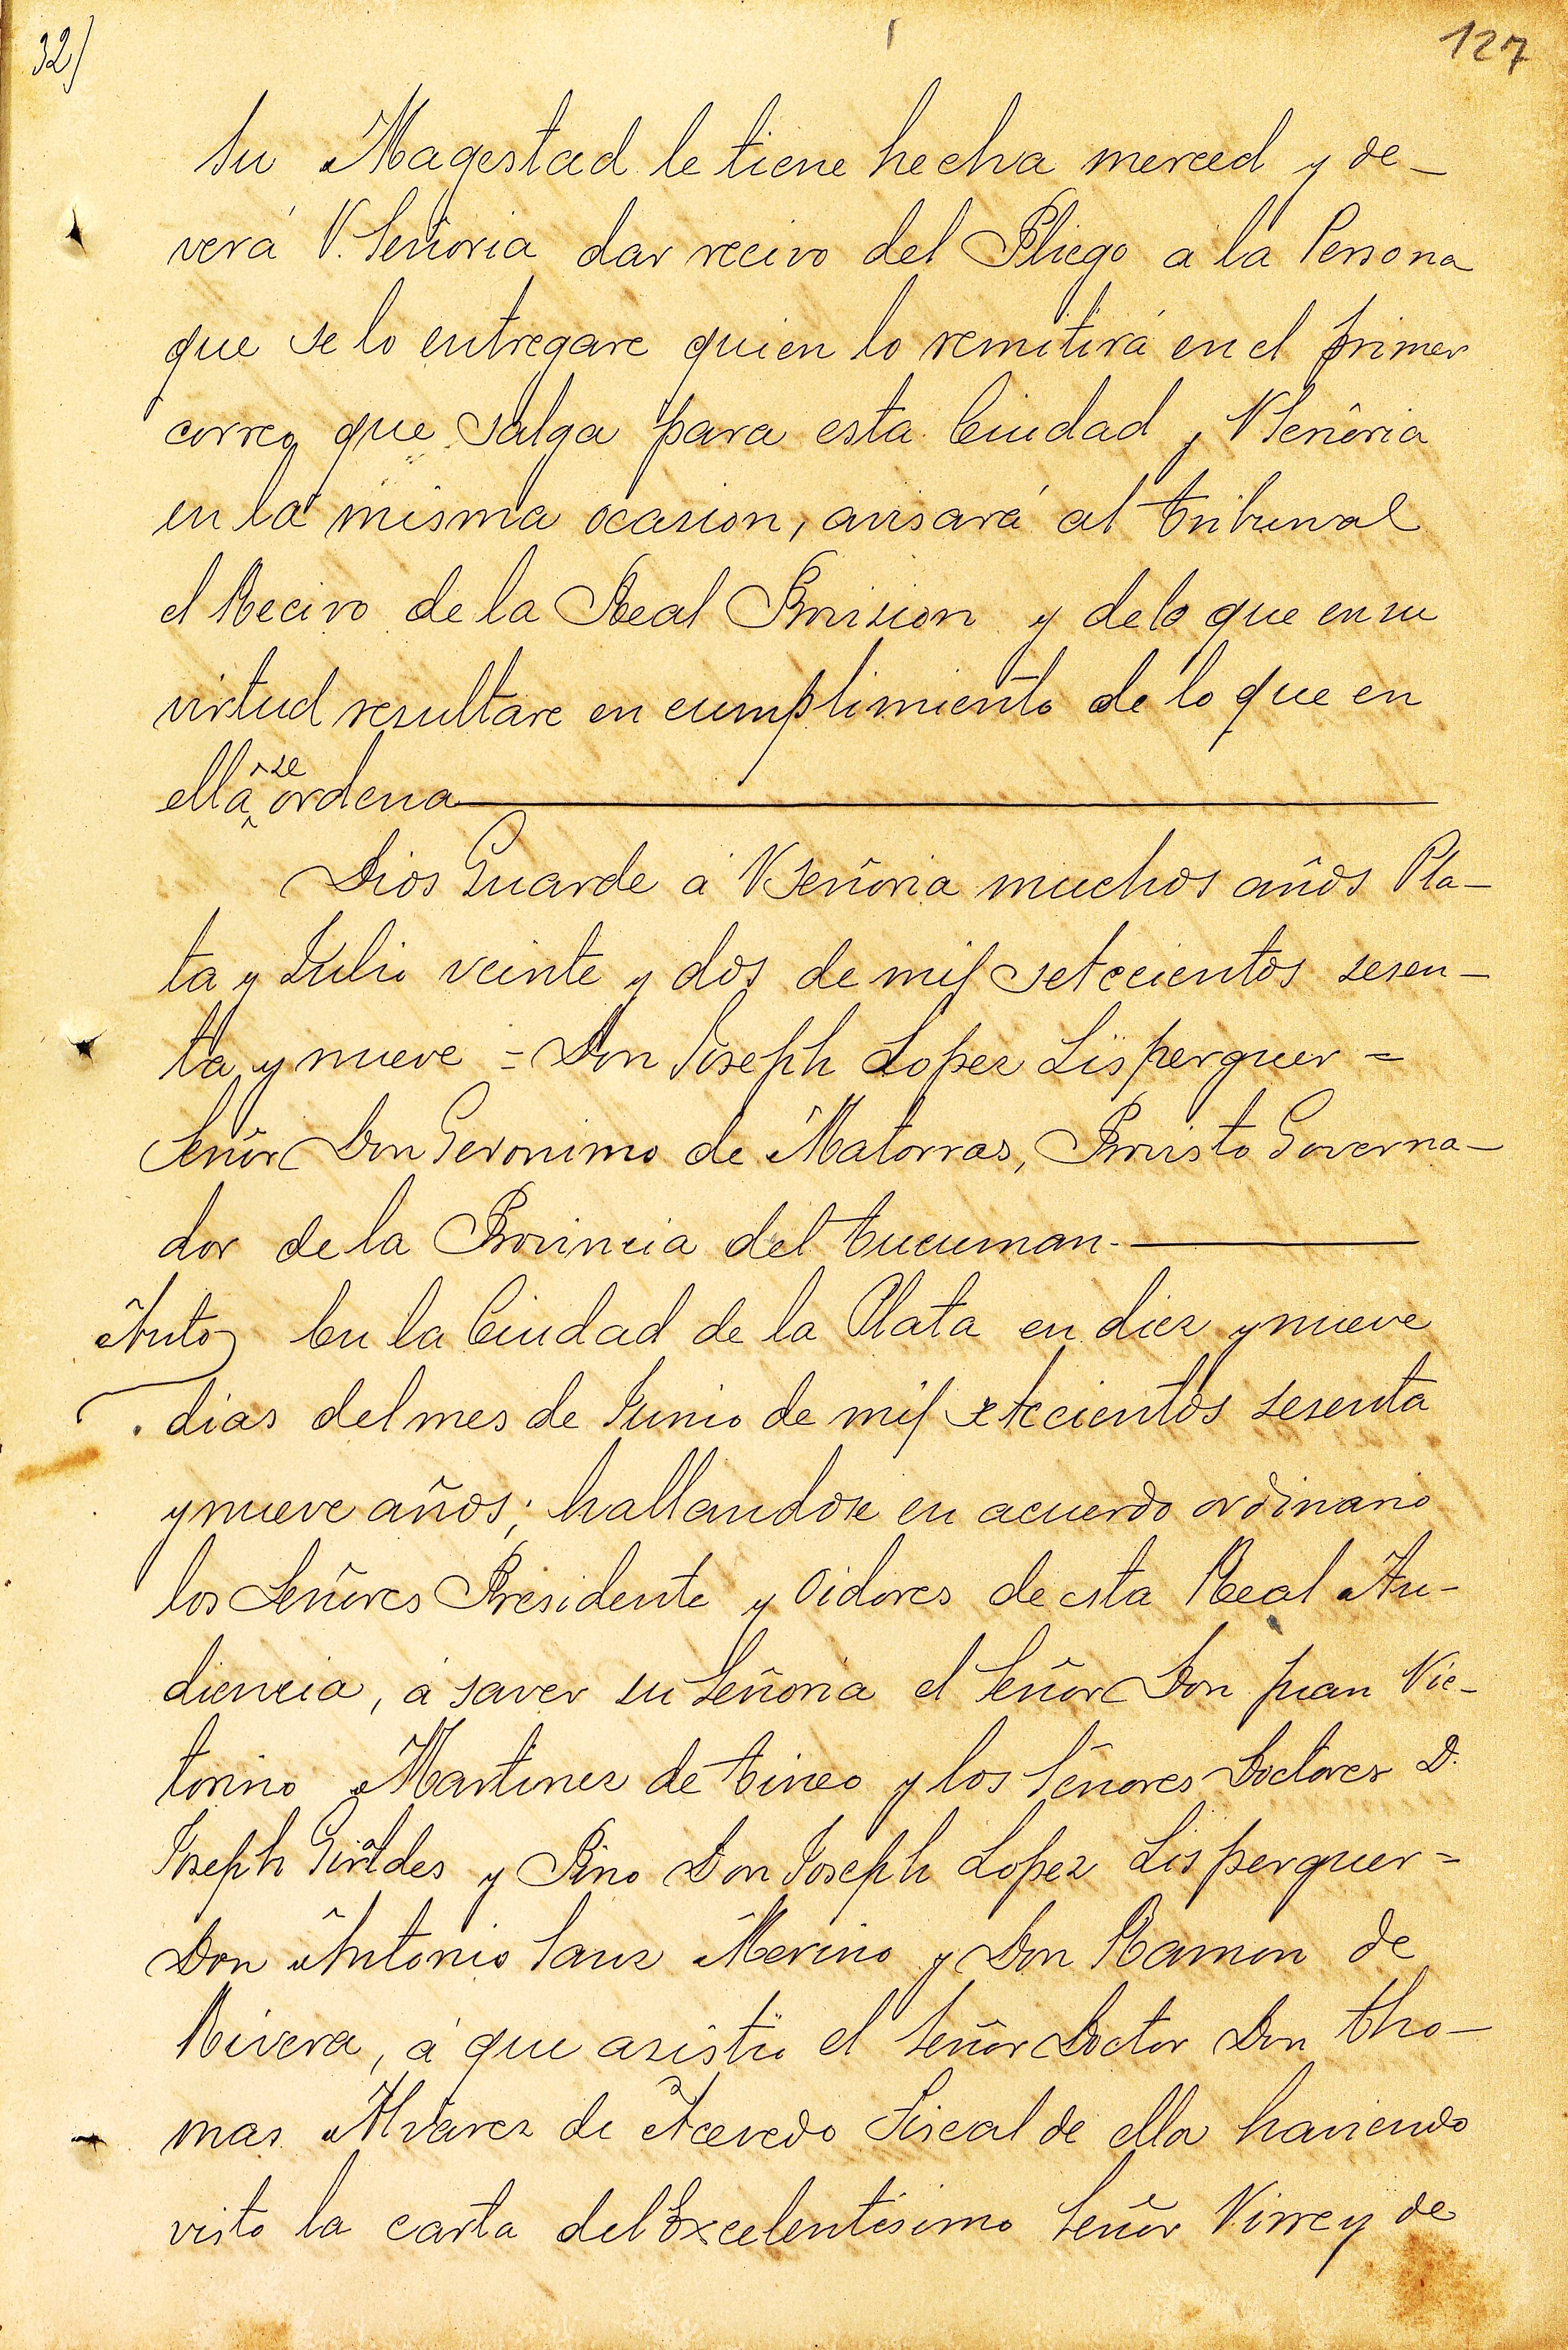 32)
127
Su Magestad le tiene hecha merced y de-
verá V. Señoria dar recivo del Pliego á la Persona
que se lo entregare quien lo remitirá en el primer
correo que salga para esta Ciudad y VSeñoria
en la misma ocasion, avisará al tribunal
el Recivo de la Real Provision y delo que en su
virtud resultare en cumplimiento de lo que en
ella se ordena
Dios Guarde á VSeñoria muchos años Pla-
ta y Julio veinte y dos de mil setecientos sesen-
ta y nueve = Don Joseph Lopez Lisperguer =
Señor Don Geronimo de Matorras, Provisto Governa-
dor de la Provincia del Tucuman.
Auto En la Ciudad de la Plata en diez y nueve
dias del mes de Junio de mil setecientos sesenta
y nueve años; hallandose en acuerdo ordinario
los Señores Presidente y Oidores de esta Real Au-
diencia, á saver su Señoria el Señor Don Juan Vic-
torino Martinez de Tineo y los Señores Doctores D.
Joseph Giraldes y Pino Don Joseph Lopez Lisperguer =
Don Antonio Sanz Merino y Don Ramon de
Rivera, á que asistió el Señor Doctor Don Tho-
mas Alvarez de Acevedo Fiscal de ella haviendo
visto la carta del Excelentisimo Señor Virrey de